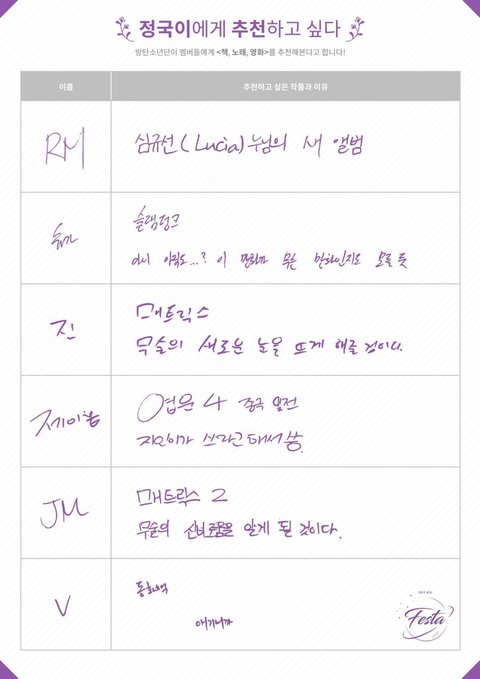 정국이에게 추천하고 싶다
방탄소년단이 멤버들에게 <책, 노래, 영화>를 추천해본다고 합니다!
이름
추천하고 싶은 작품과 이유
RM
심규선(Lucia)누님의 새 앨범
슈가
슬램덩크
아니 아직도...? 이 만화가 무슨 만화인지도 모를 듯
진
매트릭스
무술의 새로운 눈을 뜨게 해줄 것이다.
제이홉
엽문 4 중국 입전
지민이가 쓰라고 해서 씀.
JM
매트릭스 2
무술의 신비로움을 알게 될 것이다.
V
동화책
애기니까
Festa